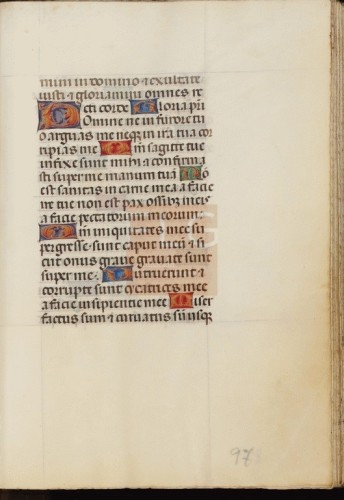 mini in domino & exultate
iusti & gloriamini omnes re
cti corde Gloria pri
Domine ne in furore tu
o arguas me neq; in ira tua cor
ripias me Qm sagitte tue
infixe sunt mihi & confirma
sti super me manum tuā No
est sanitas in carne mea a facie
ire tue non est pax ossib; meis
a facie peccatorum meorum:
Qm iniquitates mee su
pergresse sunt caput meū & si
cut onus graue grauate sunt
super me. Putruerunt &
corrupte sunt cicatrices mee
a facie insipientie mee Miser
factus sum & curuatus sū usq;
97